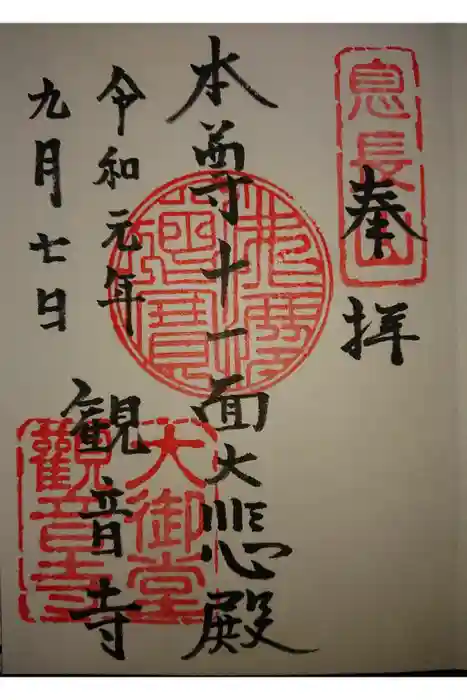 奉拝
息長山
本尊十一面大悲殿
令和元年
九月七日
観音寺
大御堂
觀音寺